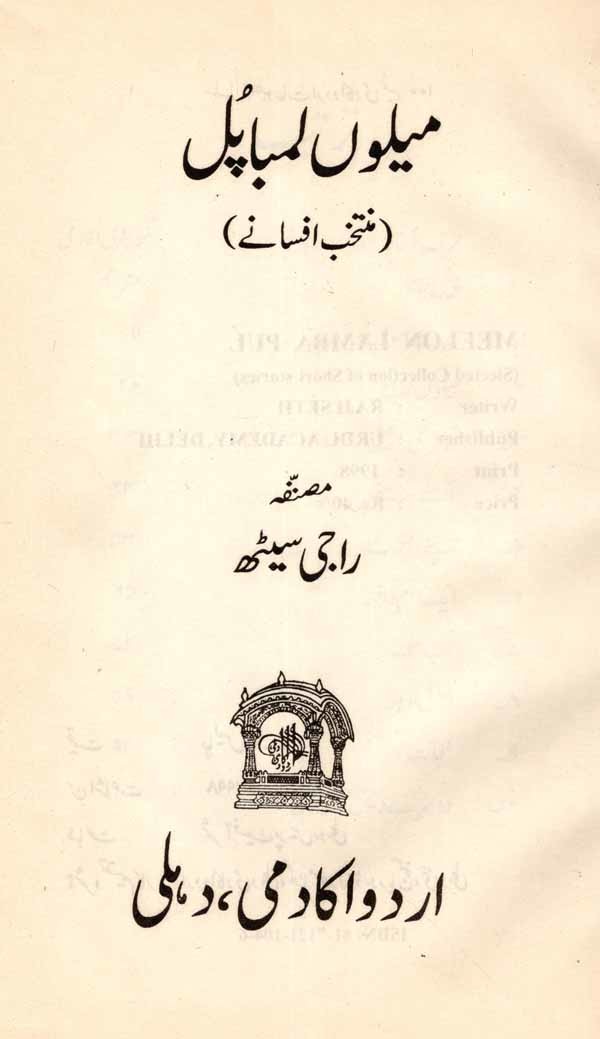 میلوں لمبا پُل
(منتخب افسانے)
مصنفّہ
راجی سیٹھ
اردو اکادمی، دہلی